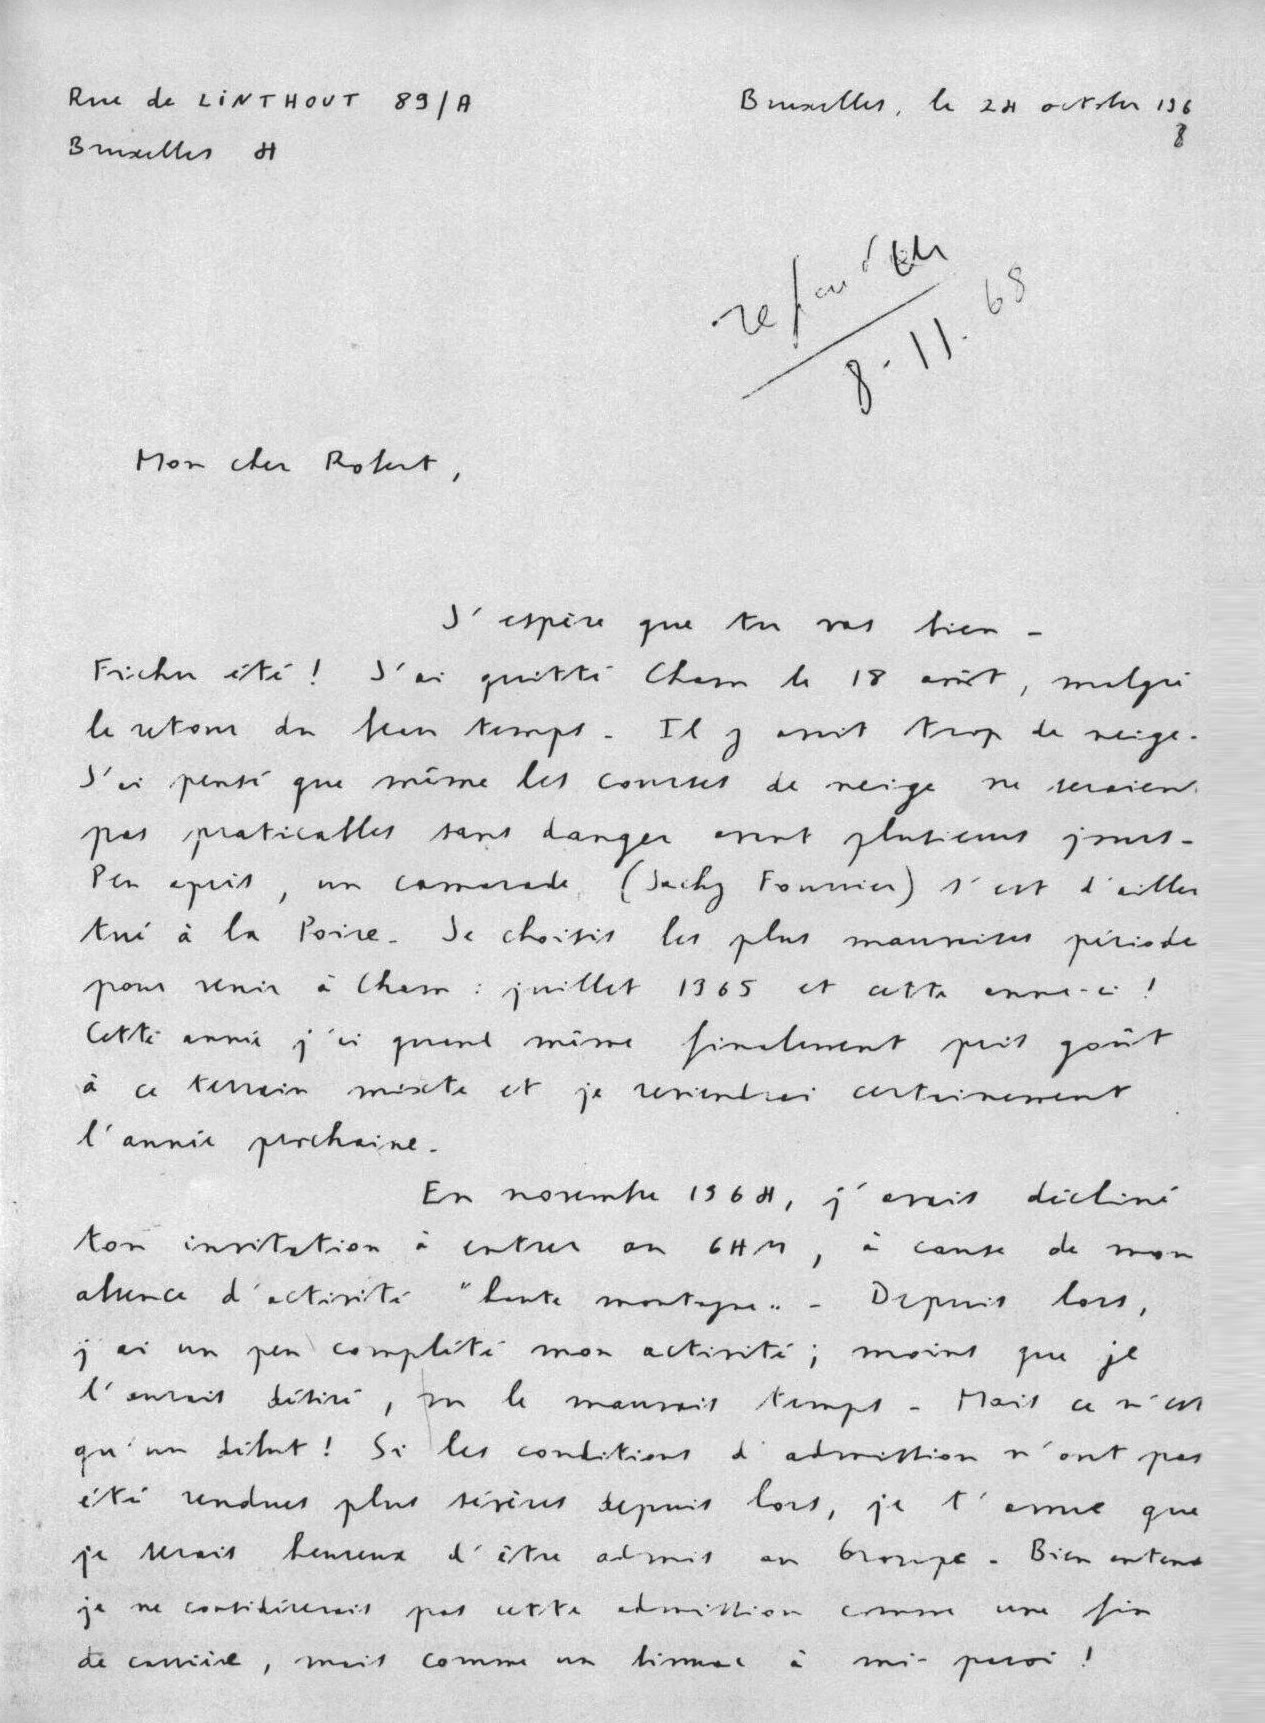 Rue de LINTHOUT 89/A
Bruxelles, le 24 octobre 196
8
Bruxelles 4
répondu
8.11.68
Mon cher Robert,
J'espère que tu vas bien -
Fichu été ! J'ai quitté Cham le 18 août, malgré
le retour du beau temps - Il y avait trop de neige -
J'ai pensé que même les courses de neige ne seraient
pas praticables sans danger avant plusieurs jours -
Peu après, un camarade (Jacky Fournier) s'est d'ailleurs
tué à la Poire - Je choisis les plus mauvaises période
pour venir à Cham : juillet 1965 et cette année-ci !
Cette année j'ai quand même finalement pris goût
à ce terrain mixte et je reviendrai certainement
l'année prochaine -
En novembre 1964, j'avais décliné
ton invitation à entrer au GHM, à cause de mon
absence d'activité "haute montagne" - Depuis lors,
j'ai un peu complété mon activité ; moins que je
l'aurais désiré, vu le mauvais temps - Mais ce n'est
qu'un début ! Si les conditions d'admission n'ont pas
été rendues plus sévères depuis lors, je t'avoue que
je serais heureux d'être admis au Groupe - Bien entend
je ne considérerais pas cette admission comme une fin
de carrière, mais comme un bivouac à mi-paroi !